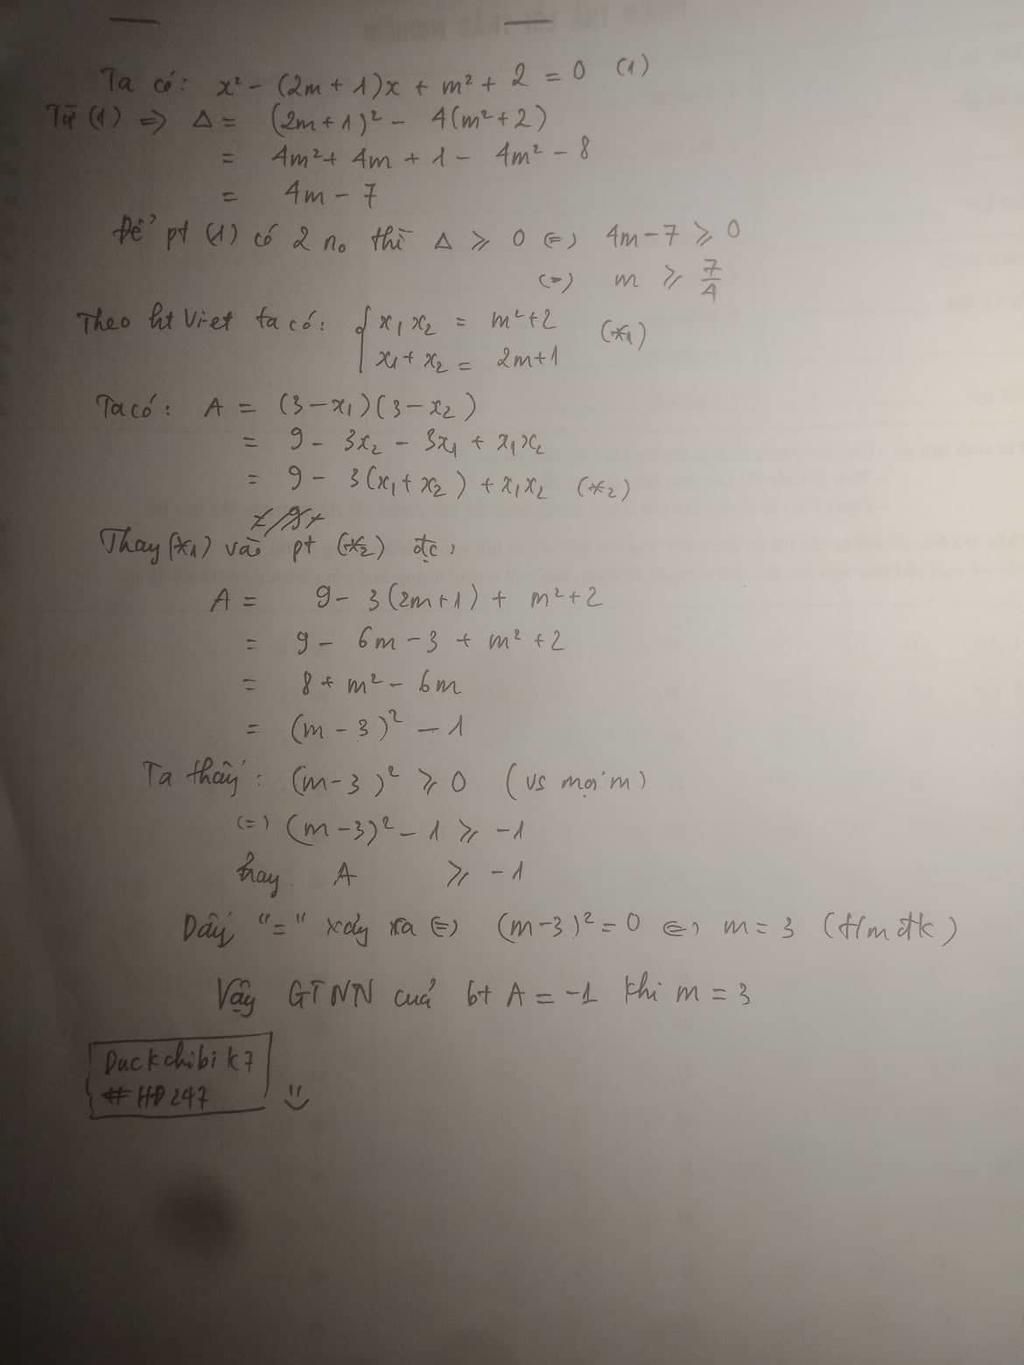 Ta có: x² - (2m + 1)x + m² + 2 = 0 (1)
Từ (1) => Δ = (2m+1)² - 4(m²+2)
= 4m² + 4m + 1 - 4m² - 8
= 4m - 7
Để pt (1) có 2 no thì Δ ⩾ 0 (=) 4m-7 ⩾ 0
(=) m ⩾ 7/4
Theo ht Viet ta có: { x₁x₂ = m²+2 (*1)
x₁+x₂ = 2m+1
Ta có: A = (3-x₁)(3-x₂)
= 9 - 3x₂ - 3x₁ + x₁x₂
= 9 - 3(x₁+x₂) + x₁x₂ (*2)
Thay (*1) vào pt (*2) đc,
A = 9 - 3(2m+1) + m²+2
= 9 - 6m - 3 + m² + 2
= 8 + m² - 6m
= (m - 3)² - 1
Ta thấy: (m-3)² ⩾ 0 (vs mọi m)
(=) (m-3)² - 1 ⩾ -1
hay A ⩾ -1
Dấu "=" xảy ra (=) (m-3)² = 0 (=) m = 3 (t/m đk)
Vậy GTNN của bt A = -1 khi m = 3
Duckchibi k7
#HD247